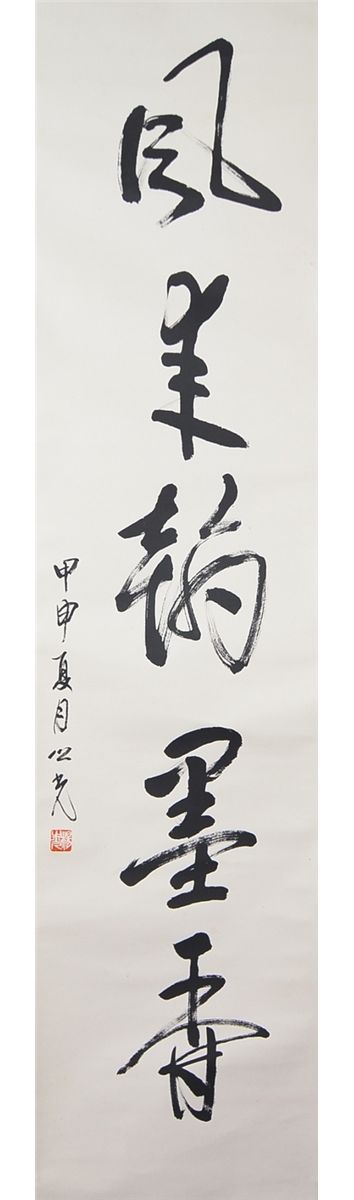 風来翰墨香
甲申夏月公堯